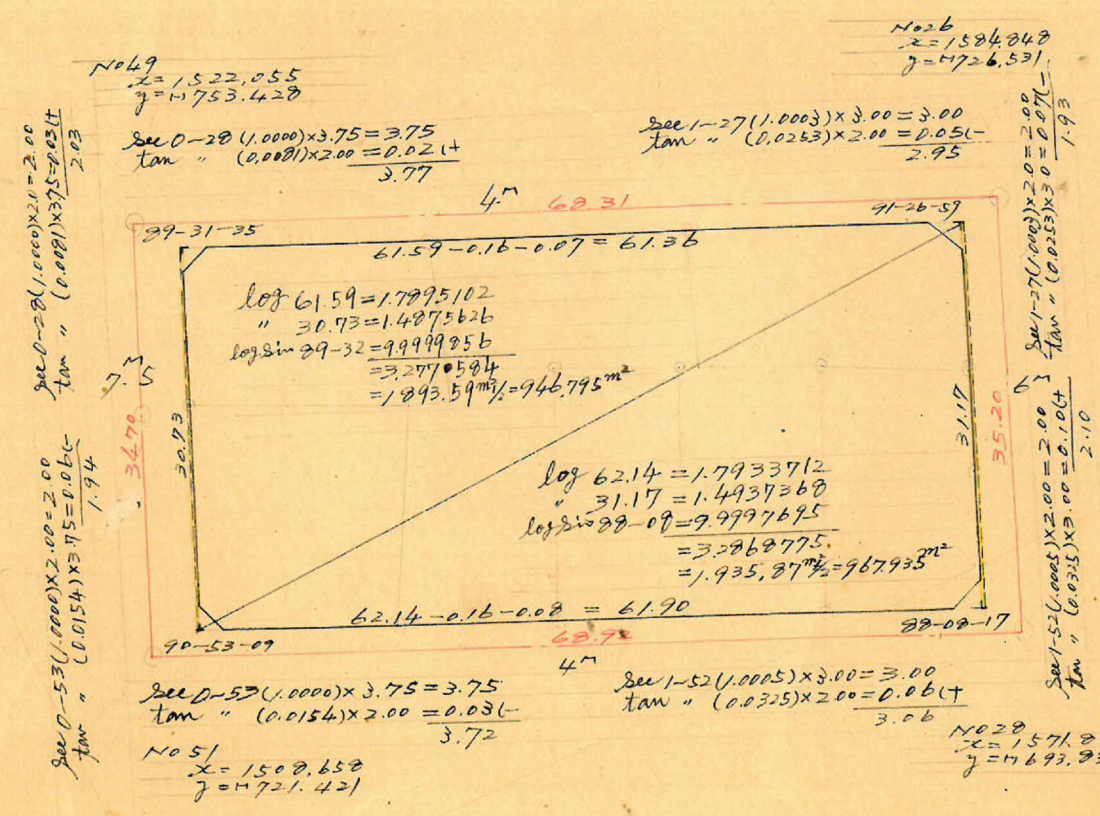 No49
x=1522.055
y=H753.428
No26
x=1584.848
y=H726.531
sec 0-28(1.0000)×3.75=3.75
tan 〃 (0.0081)×2.00=0.02(+
3.77
sec 1-27(1.0003)×3.00=3.00
tan 〃 (0.0253)×2.00=0.05(-
2.95
sec 0-28(1.0000)×2.0=2.00
tan 〃 (0.0081)×3.75=0.03(+
2.03
sec 1-27(1.0003)×2.0=2.00
tan 〃 (0.0253)×3.0=0.07(-
1.93
4.m
68.31
89-31-35
91-26-59
61.59-0.16-0.07=61.36
log 61.59=1.7895102
〃 30.73=1.4875626
log sin 89-32=9.9999856
=3.2770584
=1893.59m²/2=946.795m²
7.m5
34.70
30.73
31.17
35.20
6m
log 62.14=1.7933712
〃 31.17=1.4937368
log sin 88-08=9.9997695
=3.2868775
=1.935,87m²/2=967.935m²
62.14-0.16-0.08=61.90
90-53-09
88-08-17
68.92
4m
sec 0-53(1.0000)×2.00=2.00
tan 〃 (0.0154)×3.75=0.06(-
1.94
sec 1-52(1.0005)×2.00=2.00
tan 〃 (0.0325)×3.00=0.10(+
2.10
sec 0-53(1.0000)×3.75=3.75
tan 〃 (0.0154)×2.00=0.03(-
3.72
sec 1-52(1.0005)×3.00=3.00
tan 〃 (0.0325)×2.00=0.06(+
3.06
No51
x=1508.658
y=H721.421
No28
x=1571.8
y=H693.83